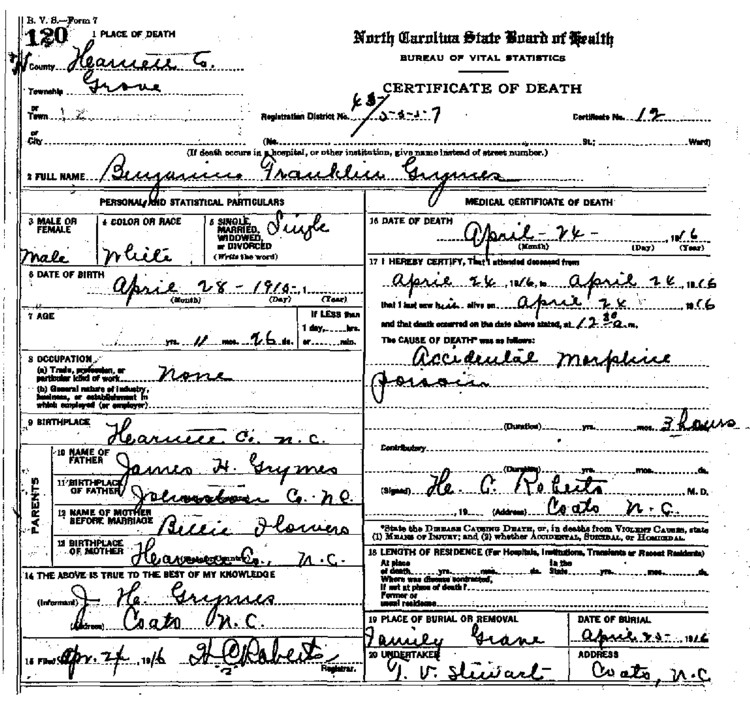 B. V. S.—Form 7
120
1 PLACE OF DEATH
North Carolina State Board of Health
BUREAU OF VITAL STATISTICS
County Harnett Co.
CERTIFICATE OF DEATH
Township Grove
or Town
Registration District No. 43-5557
Certificate No. 12
or City
(No. St.; Ward)
(If death occurs in a hospital, or other institution, give name instead of street number.)
2 FULL NAME Benjamin Franklin Grymes
PERSONAL AND STATISTICAL PARTICULARS
3 MALE OR FEMALE
Male
4 COLOR OR RACE
White
5 SINGLE, MARRIED, WIDOWED, or DIVORCED
(Write the word)
Single
6 DATE OF BIRTH
April 28 - 1915
(Month) (Day) (Year)
7 AGE
yrs. 11 mos. 26 ds.
If LESS than
1 day, hrs.
or min.
8 OCCUPATION
(a) Trade, profession, or
particular kind of work None
(b) General nature of industry,
business, or establishment in
which employed (or employer)
9 BIRTHPLACE
Harnett Co. N.C.
PARENTS
10 NAME OF FATHER
James H. Grymes
11 BIRTHPLACE OF FATHER
Johnston Co. N.C.
12 NAME OF MOTHER BEFORE MARRIAGE
Billie Flowers
13 BIRTHPLACE OF MOTHER
Harnett Co., N.C.
14 THE ABOVE IS TRUE TO THE BEST OF MY KNOWLEDGE
(Informant) J H. Grymes
(Address) Coats N.C.
15 Filed Apr. 24, 1916 H C Roberts
Registrar.
MEDICAL CERTIFICATE OF DEATH
16 DATE OF DEATH
April - 24 - , 1916
(Month) (Day) (Year)
17 I HEREBY CERTIFY, That I attended deceased from
April 24, 1916, to April 24, 1916
that I last saw him alive on April 24 1916
and that death occurred on the date above stated, at 12 30 a.m.
The CAUSE OF DEATH* was as follows:
Accidental morphine
poison
(Duration) yrs. mos. 3 hours
Contributory
(Duration) yrs. mos. ds.
(Signed) H. C. Roberts M. D.
, 19 (Address) Coats N.C.
*State the DISEASE CAUSING DEATH, or, in deaths from VIOLENT CAUSES, state
(1) MEANS OF INJURY; and (2) whether ACCIDENTAL, SUICIDAL, or HOMICIDAL.
18 LENGTH OF RESIDENCE (For Hospitals, Institutions, Transients or Recent Residents)
At place In the
of death yrs. mos. ds. State yrs. mos. ds.
Where was disease contracted,
if not at place of death?
Former or
usual residence
19 PLACE OF BURIAL OR REMOVAL
Family Grave
DATE OF BURIAL
April 25, 1916
20 UNDERTAKER
T. V. Stewart
ADDRESS
Coats, N.C.